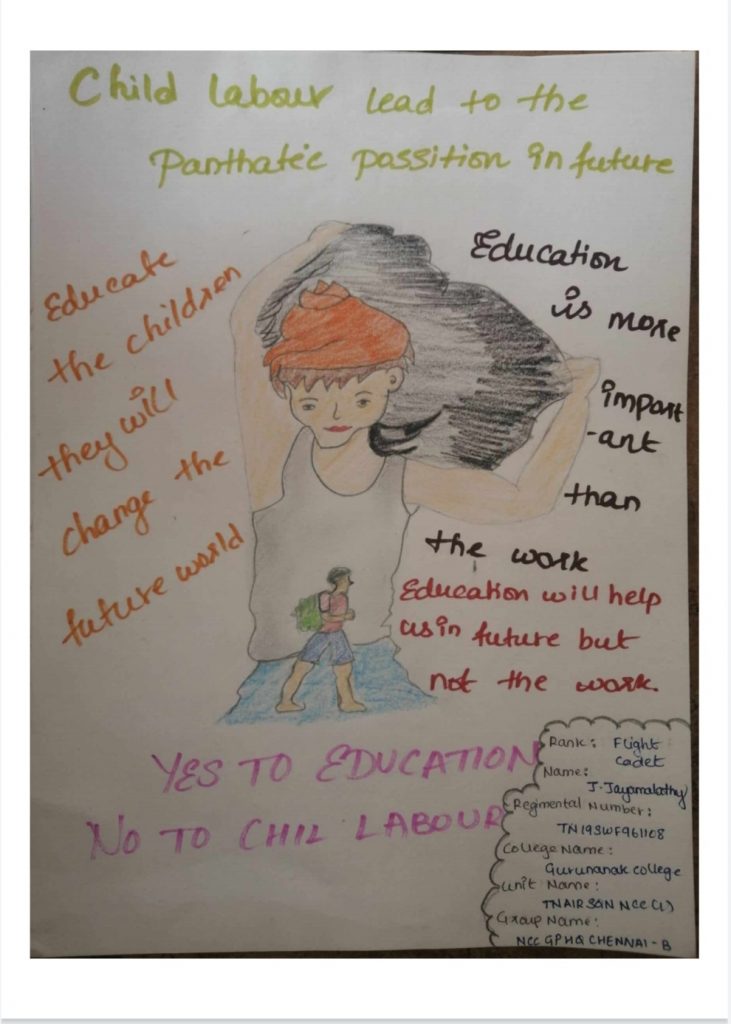 Child labour lead to the
Panthatic possition in future
Educate
the children
they will
change the
future world
Education
is more
import
-ant
than
the work
Education will help
us in future but
not the work.
YES TO EDUCATION
NO TO CHIL LABOUR
Rank: Flight
cadet
Name:
J. Jayamalathy
Regimental Number:
TN19SWF961108
College Name:
Gurunanak college
Unit Name:
TNAIR SQN NCC (L)
Group Name:
NCC GPHQ CHENNAI - B